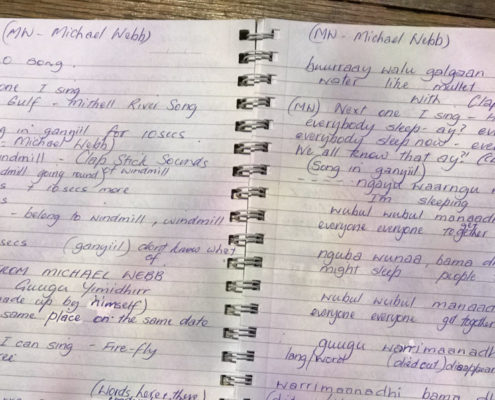 (MW - Michael Webb)
O song.
one I sing
Gulf - Mitchell River Song
g in gangiil for 10 secs
- Michael Webb)
ndmill - Clap Stick Sounds
dmill going round of windmill
s & 10 secs more
s
- belong to windmill, windmill
secs (gangiil) don't know what of.
ROM MICHAEL WEBB
Guugu Yimidhirr
made up by himself)
same place on the same date
I can sing - Fire-fly
ree
(words here & there)
(MW - Michael Webb)
buurraay walu galgaan
water like mullet
With Clap
(MW) Next one I sing -
everybody sleep - ay? eve
everybody sleep now - eve
We all know that ay?!
(Song in gangiil)
---- ngayu waarngu
I'm sleeping
wubul wubul manaadi
everyone everyone get together
nguba wunaa, bama d
might sleep people
wubul wubul manaad
everyone everyone get together
guugu warrimaanadh
lang/word (died out) disappear
warrimaanadhi bama d